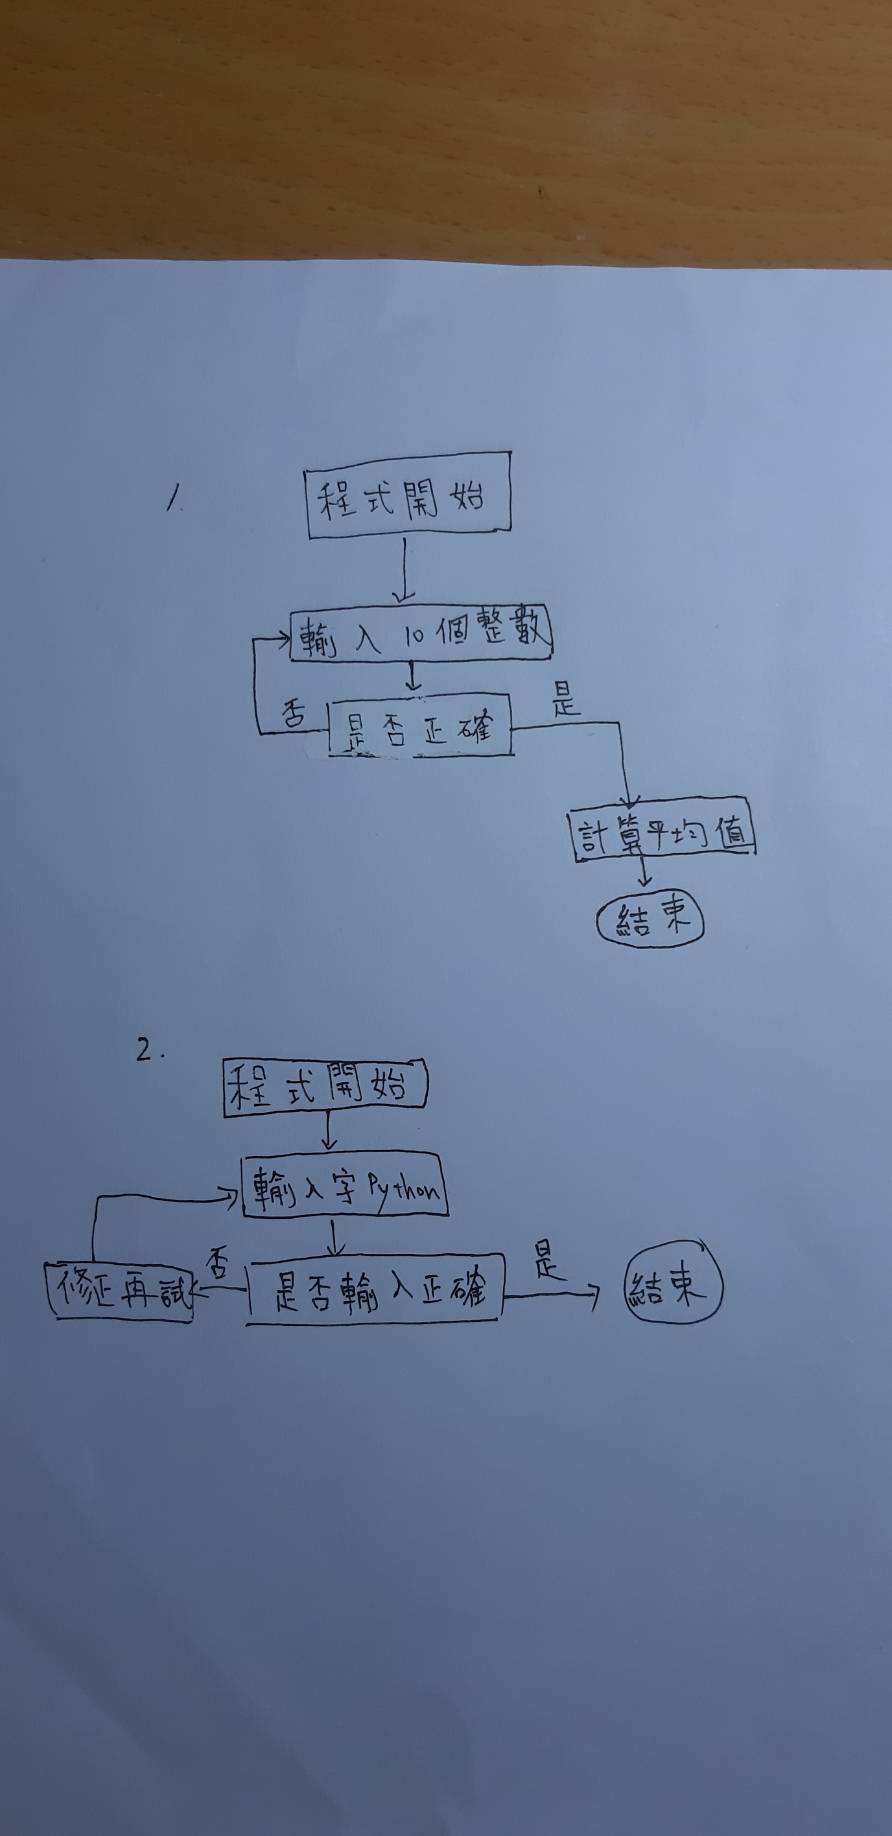 1.
程式開始
輸入10個整數
否
是否正確
是
計算平均值
結束
2.
程式開始
輸入字Python
修正再試
否
是否輸入正確
是
結束